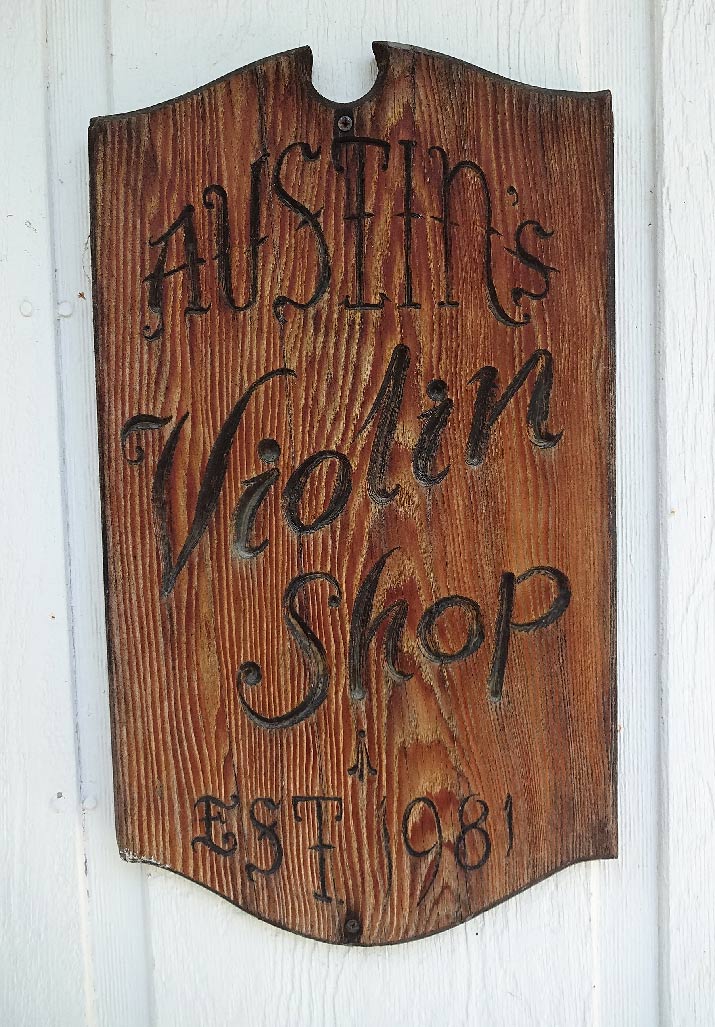 AUSTIN's
Violin
Shop
EST 1981